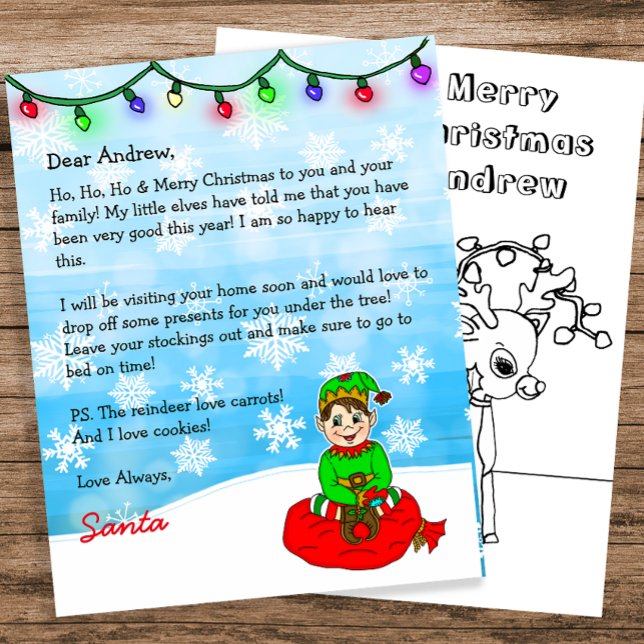 Dear Andrew,
Ho, Ho, Ho & Merry Christmas to you and your
family! My little elves have told me that you have
been very good this year! I am so happy to hear
this.
I will be visiting your home soon and would love to
drop off some presents for you under the tree!
Leave your stockings out and make sure to go to
bed on time!
PS. The reindeer love carrots!
And I love cookies!
Love Always,
Santa
Merry
hristmas
ndrew